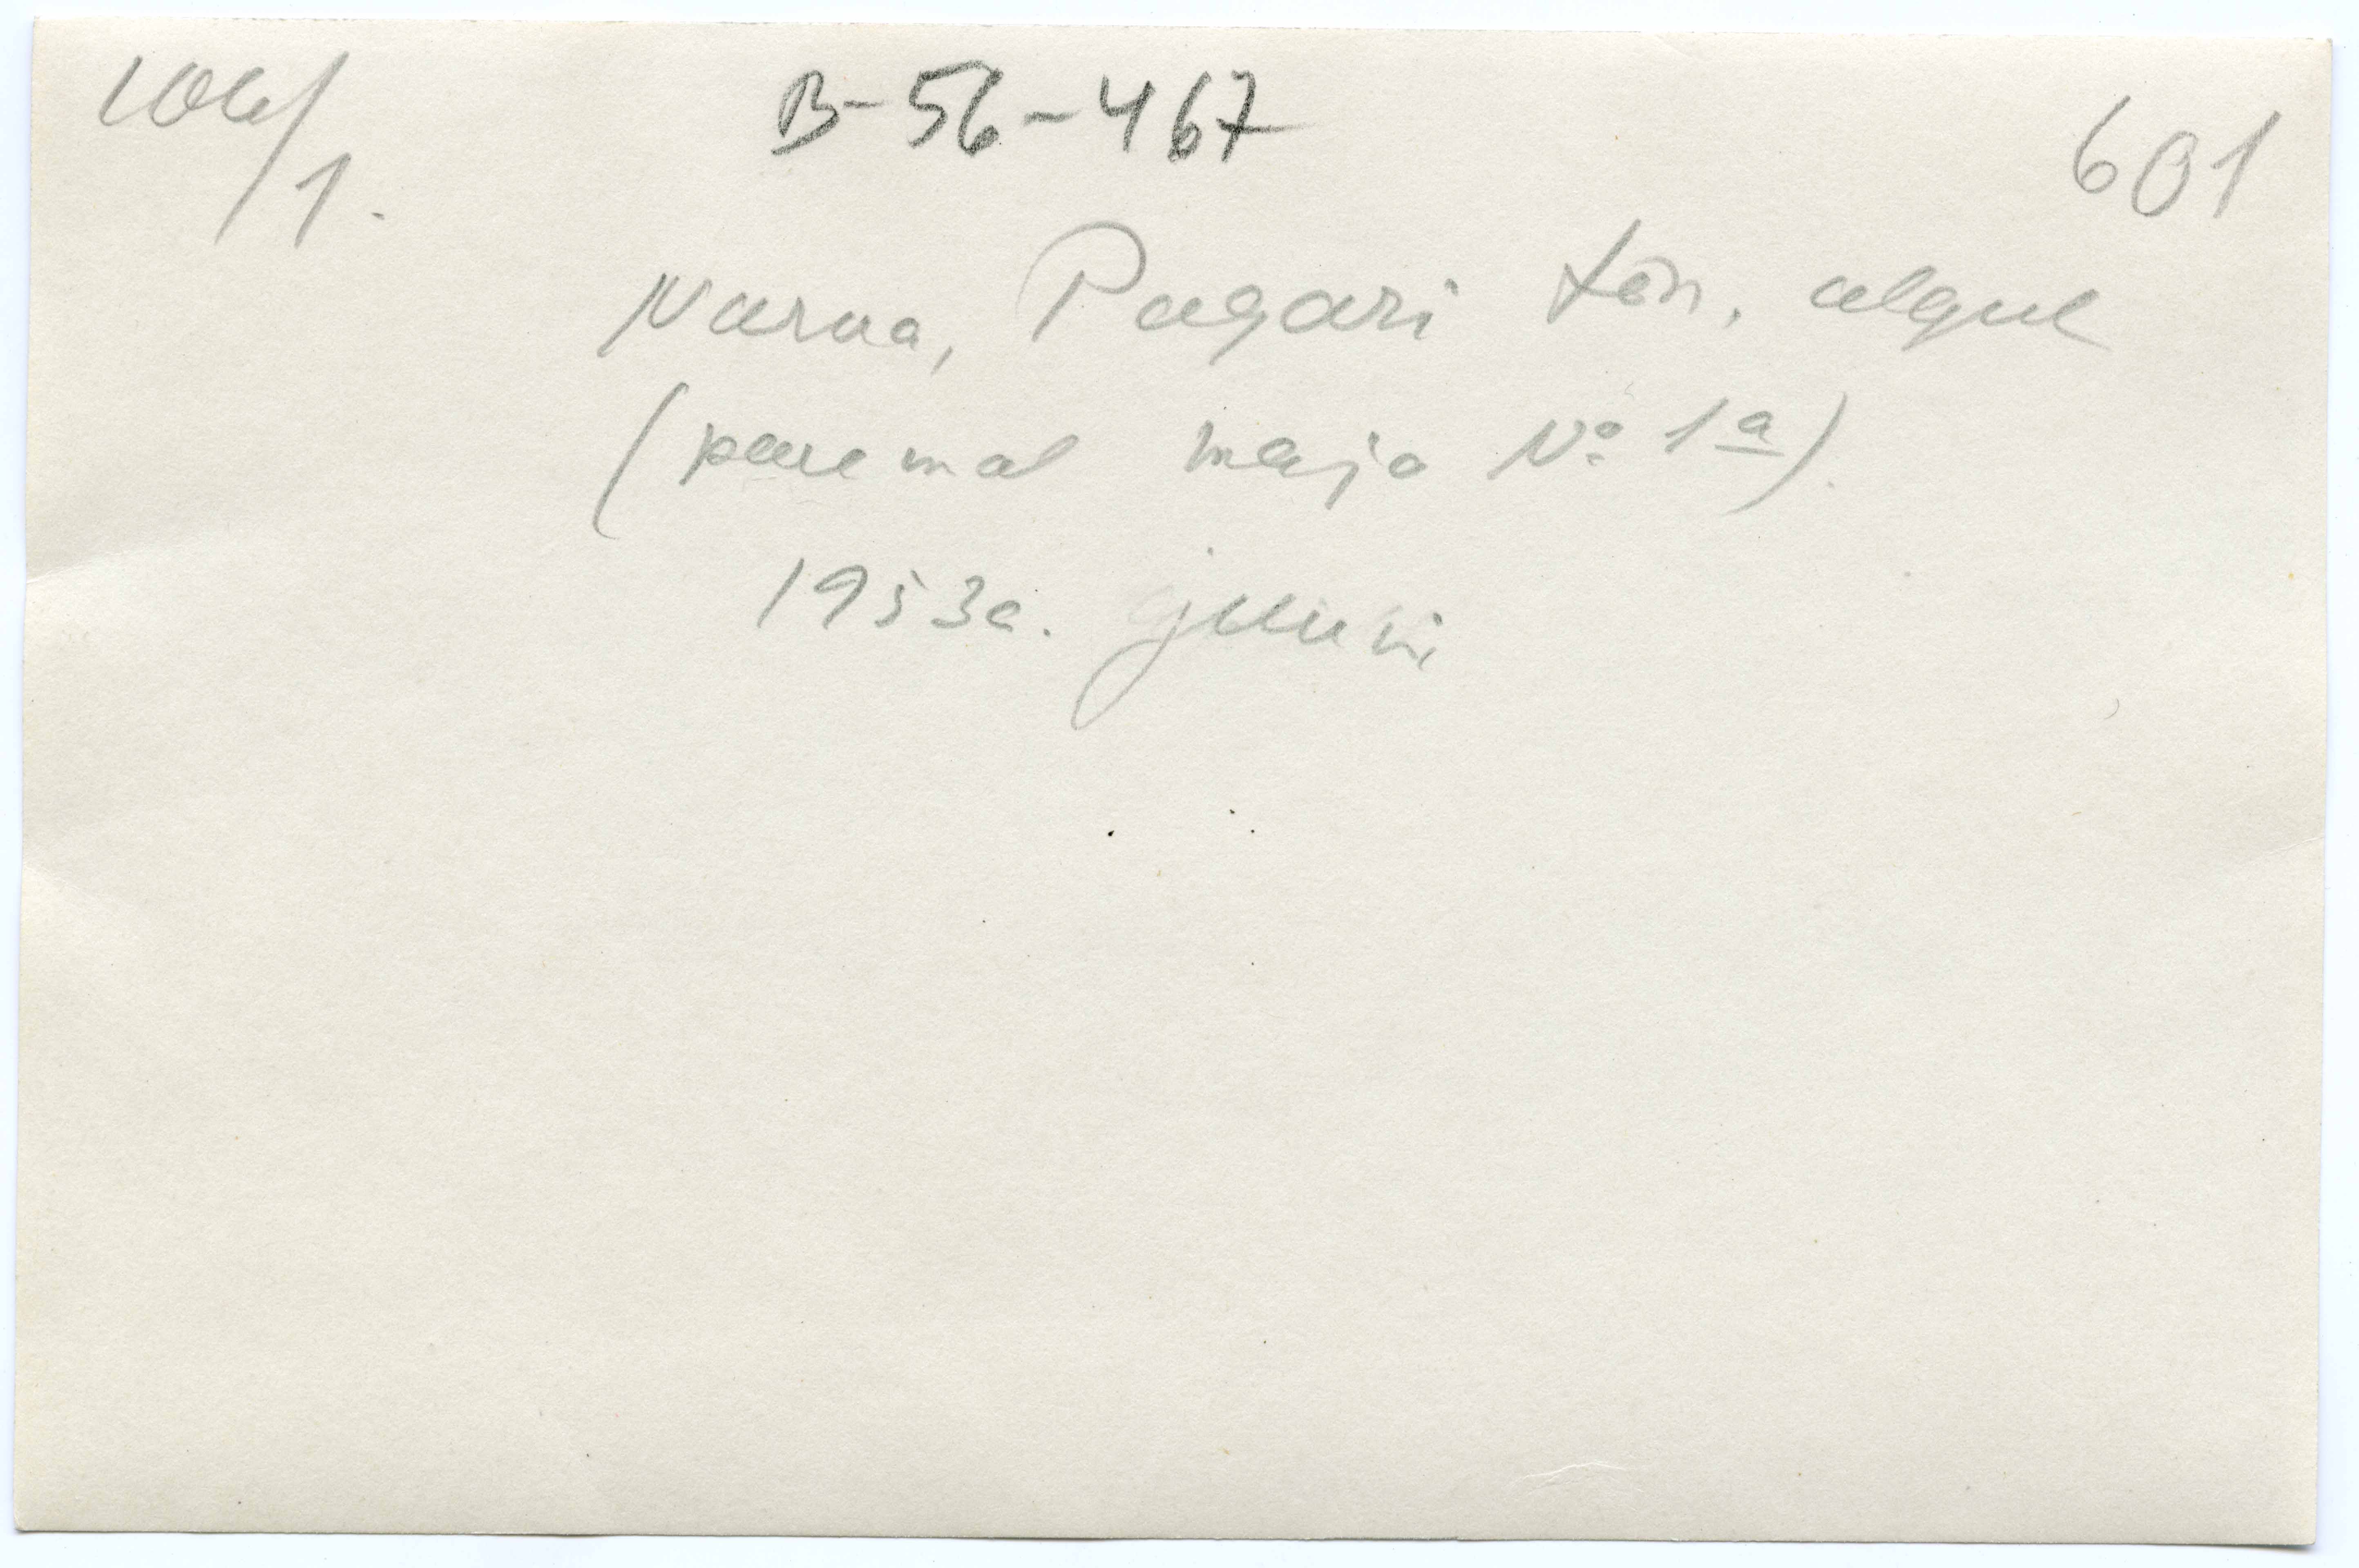 B-56-467
601
1.
Narva, Pagari tän. algul
(paremal maja № 1a).
1953a. juuni